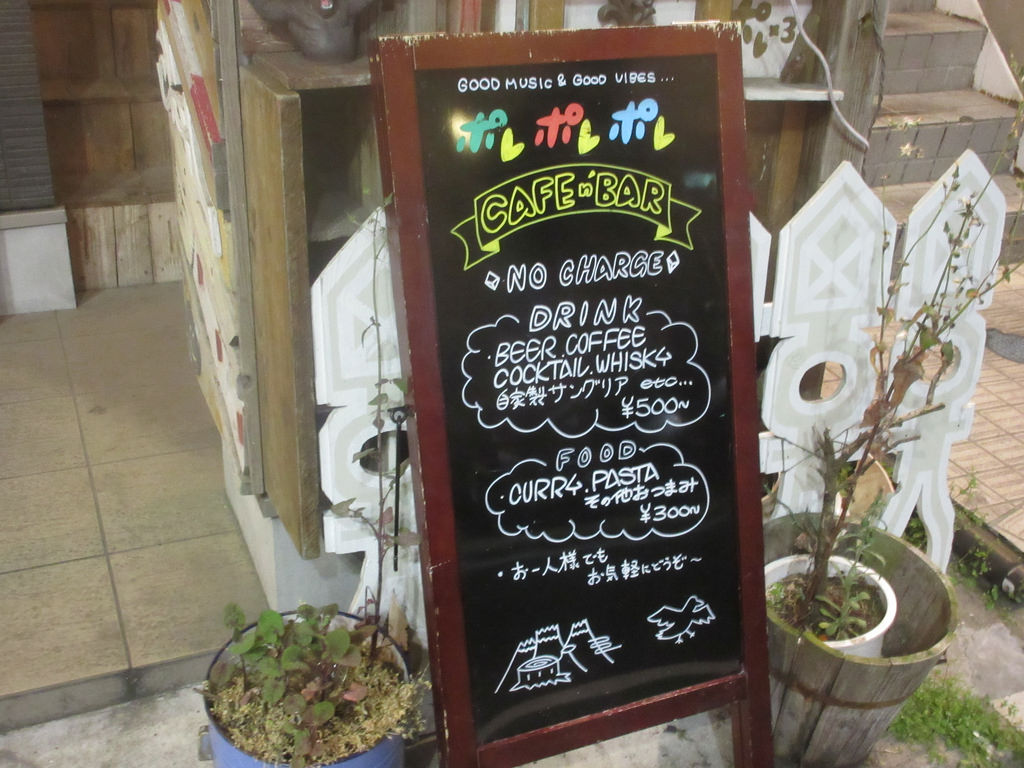 GOOD MUSIC & GOOD VIBES...
ポレポレポレ
CAFE n' BAR
NO CHARGE
DRINK
・BEER.COFFEE
COCKTAIL.WHISKY
自家製サングリア etc...
¥500~
FOOD
・CURRY.PASTA
その他おつまみ
¥300~
・お一人様でも
お気軽にどうぞ~